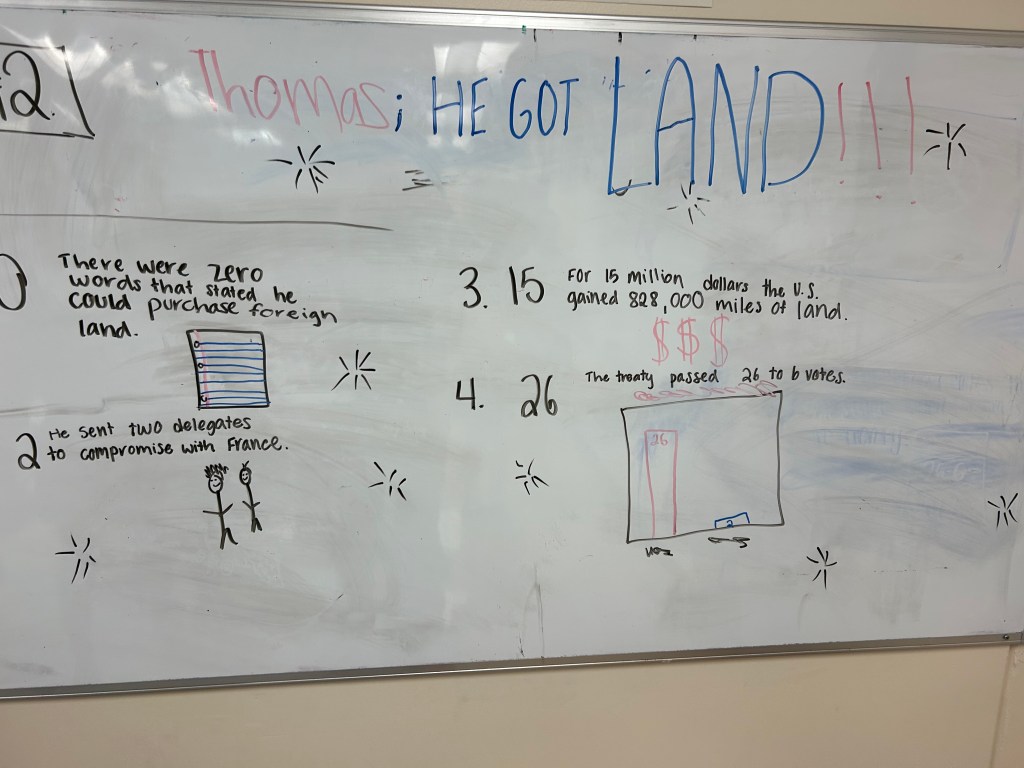 12.
Thomas; HE GOT LAND!!!
0
There were zero
words that stated he
could purchase foreign
land.
2 He sent two delegates
to compromise with France.
3. 15 For 15 million dollars the U.S.
gained 828,000 miles of land.
$ $ $
4. 26 The treaty passed 26 to 6 votes.
26